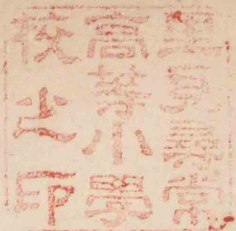 里見尋常
高等小學
校之印